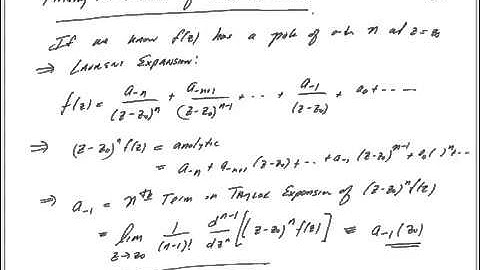 If we know f(z) has a pole of order n at z=z₀
⇒ LAURENT EXPANSION:
f(z) = a₋ₙ/(z-z₀)ⁿ + a₋ₙ₊₁/(z-z₀)ⁿ⁻¹ + ... + a₋₁/(z-z₀) + a₀ + ....
⇒ (z-z₀)ⁿ f(z) = analytic
= a₋ₙ + a₋ₙ₊₁ (z-z₀) + ... + a₋₁ (z-z₀)ⁿ⁻¹ + a₀( )ⁿ + ...
⇒ a₋₁ = nth Term in Taylor Expansion of (z-z₀)ⁿ f(z)
= lim z→z₀ 1/(n-1)! dⁿ⁻¹/dzⁿ [(z-z₀)ⁿ f(z)] = a₋₁(z₀)